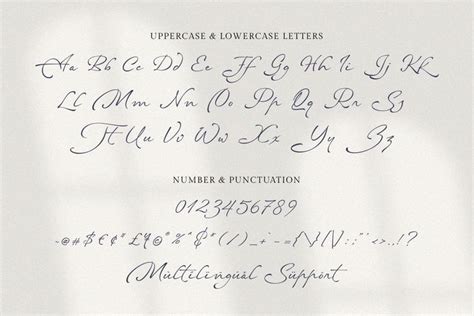 UPPERCASE & LOWERCASE LETTERS
Aa Bb Cc Dd Ee Ff Gg Hh Ii Jj Kk
Ll Mm Nn Oo Pp Qq Rr Ss
Tt Uu Vv Ww Xx Yy Zz
NUMBER & PUNCTUATION
0123456789
~@#$€¢
Multilingual Support